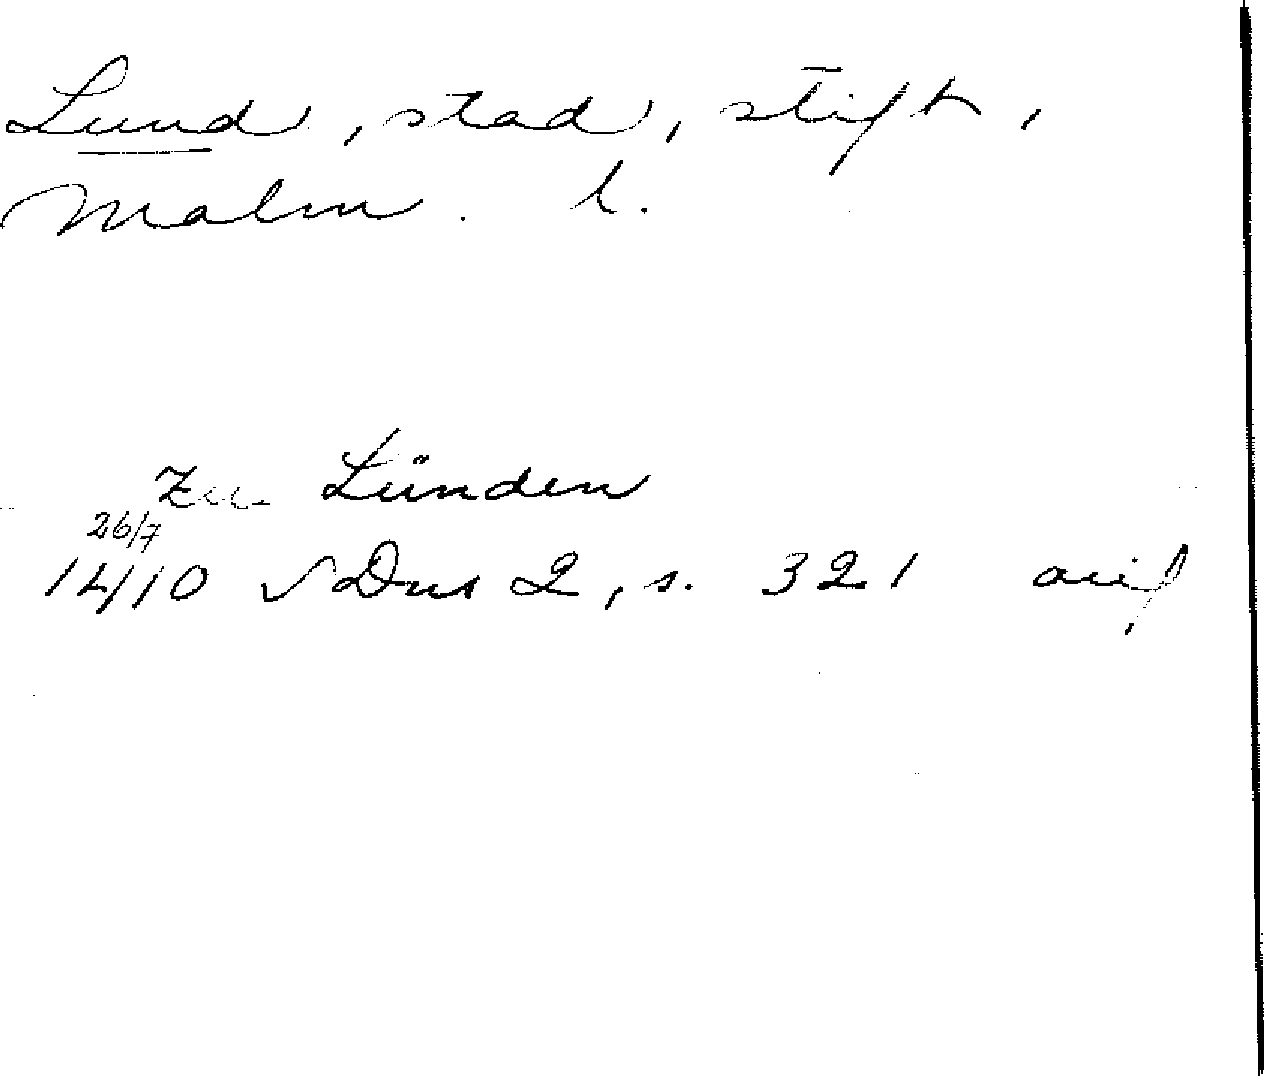 Lund, stad, stift,
Malm. l.
zu Lünden
26/7
1410 √ Dns 2, s. 321 avs